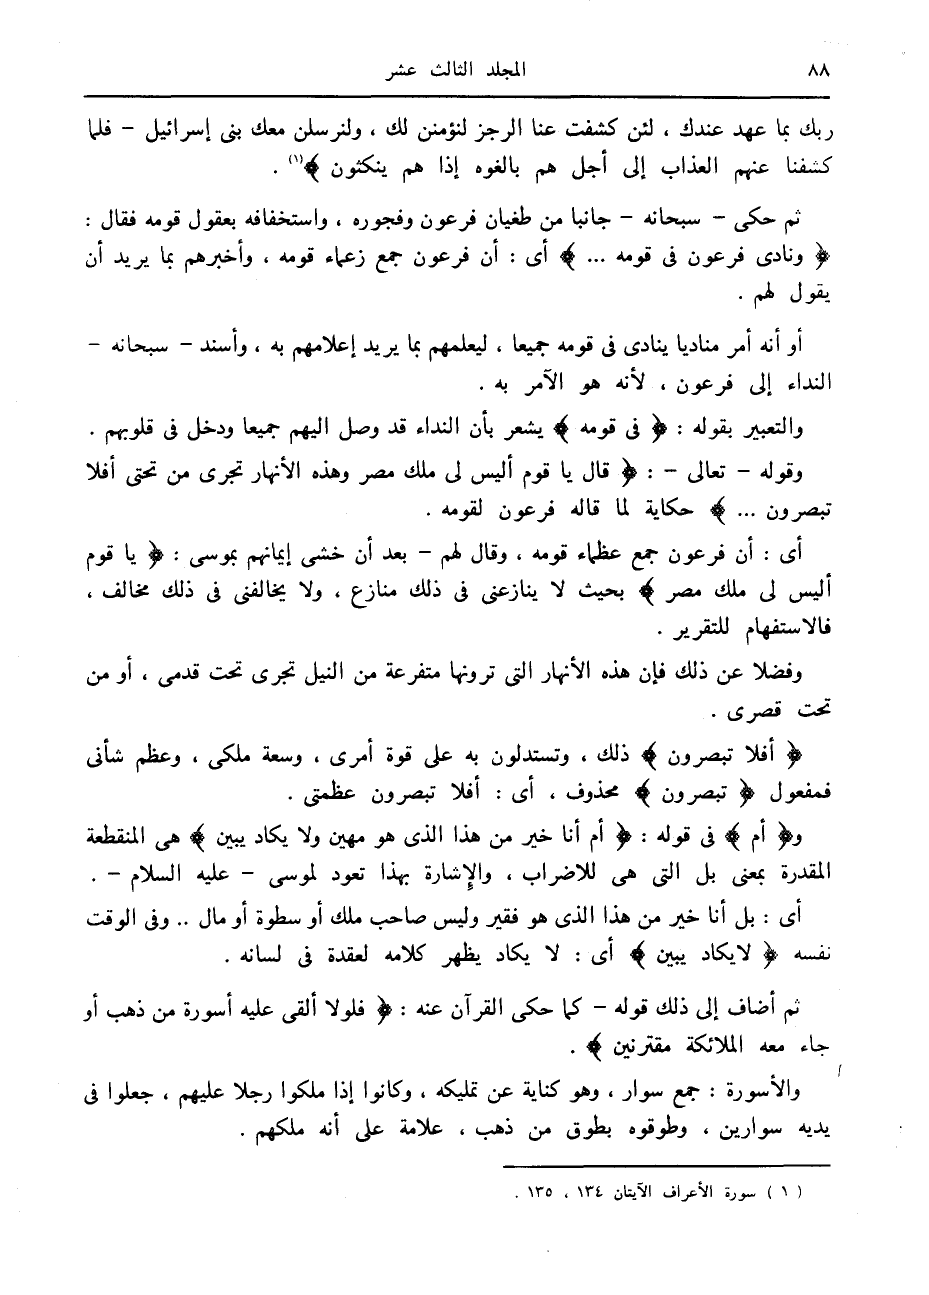 ٨٨ المجلد الثالث عشر
ربك بما عهد عندك ، لئن كشفت عنا الرجز لنؤمنن لك ، ولنرسلن معك بنى إسرائيل – فلما
كشفنا عنهم العذاب إلى أجل هم بالغوه إذا هم ينكثون ﴾(١) .
ثم حكى – سبحانه – جانبا من طغيان فرعون وفجوره ، واستخفافه بعقول قومه فقال :
﴿ ونادى فرعون فى قومه ... ﴾ أى : أن فرعون جمع زعماء قومه ، وأخبرهم بما يريد أن
يقول لهم .
أو أنه أمر مناديا ينادى فى قومه جميعا ، ليعلمهم بما يريد إعلامهم به ، وأسند – سبحانه –
النداء إلى فرعون ، لأنه هو الآمر به .
والتعبير بقوله : ﴿ فى قومه ﴾ يشعر بأن النداء قد وصل اليهم جميعا ودخل فى قلوبهم .
وقوله – تعالى – : ﴿ قال يا قوم أليس لى ملك مصر وهذه الأنهار تجرى من تحتى أفلا
تبصرون ... ﴾ حكاية لما قاله فرعون لقومه .
أى : أن فرعون جمع عظماء قومه ، وقال لهم – بعد أن خشى إيمانهم بموسى : ﴿ يا قوم
أليس لى ملك مصر ﴾ بحيث لا ينازعنى فى ذلك منازع ، ولا يخالفنى فى ذلك مخالف ،
فالاستفهام للتقرير .
وفضلا عن ذلك فإن هذه الأنهار التى ترونها متفرعة من النيل تجرى تحت قدمى ، أو من
تحت قصرى .
﴿ أفلا تبصرون ﴾ ذلك ، وتستدلون به على قوة أمرى ، وسعة ملكى ، وعظم شأنى
فمفعول ﴿ تبصرون ﴾ محذوف ، أى : أفلا تبصرون عظمتى .
و﴿ أم ﴾ فى قوله : ﴿ أم أنا خير من هذا الذى هو مهين ولا يكاد يبين ﴾ هى المنقطعة
المقدرة بمعنى بل التى هى للاضراب ، والإشارة بهذا تعود لموسى – عليه السلام – .
أى : بل أنا خير من هذا الذى هو فقير وليس صاحب ملك أو سطوة أو مال .. وفى الوقت
نفسه ﴿ لايكاد يبين ﴾ أى : لا يكاد يظهر كلامه لعقدة فى لسانه .
ثم أضاف إلى ذلك قوله – كما حكى القرآن عنه : ﴿ فلولا ألقى عليه أسورة من ذهب أو
جاء معه الملائكة مقترنين ﴾ .
والأسورة : جمع سوار ، وهو كناية عن تمليكه ، وكانوا إذا ملكوا رجلا عليهم ، جعلوا فى
يديه سوارين ، وطوقوه بطوق من ذهب ، علامة على أنه ملكهم .
( ١ ) سورة الأعراف الآيتان ١٣٤ ، ١٣٥ .